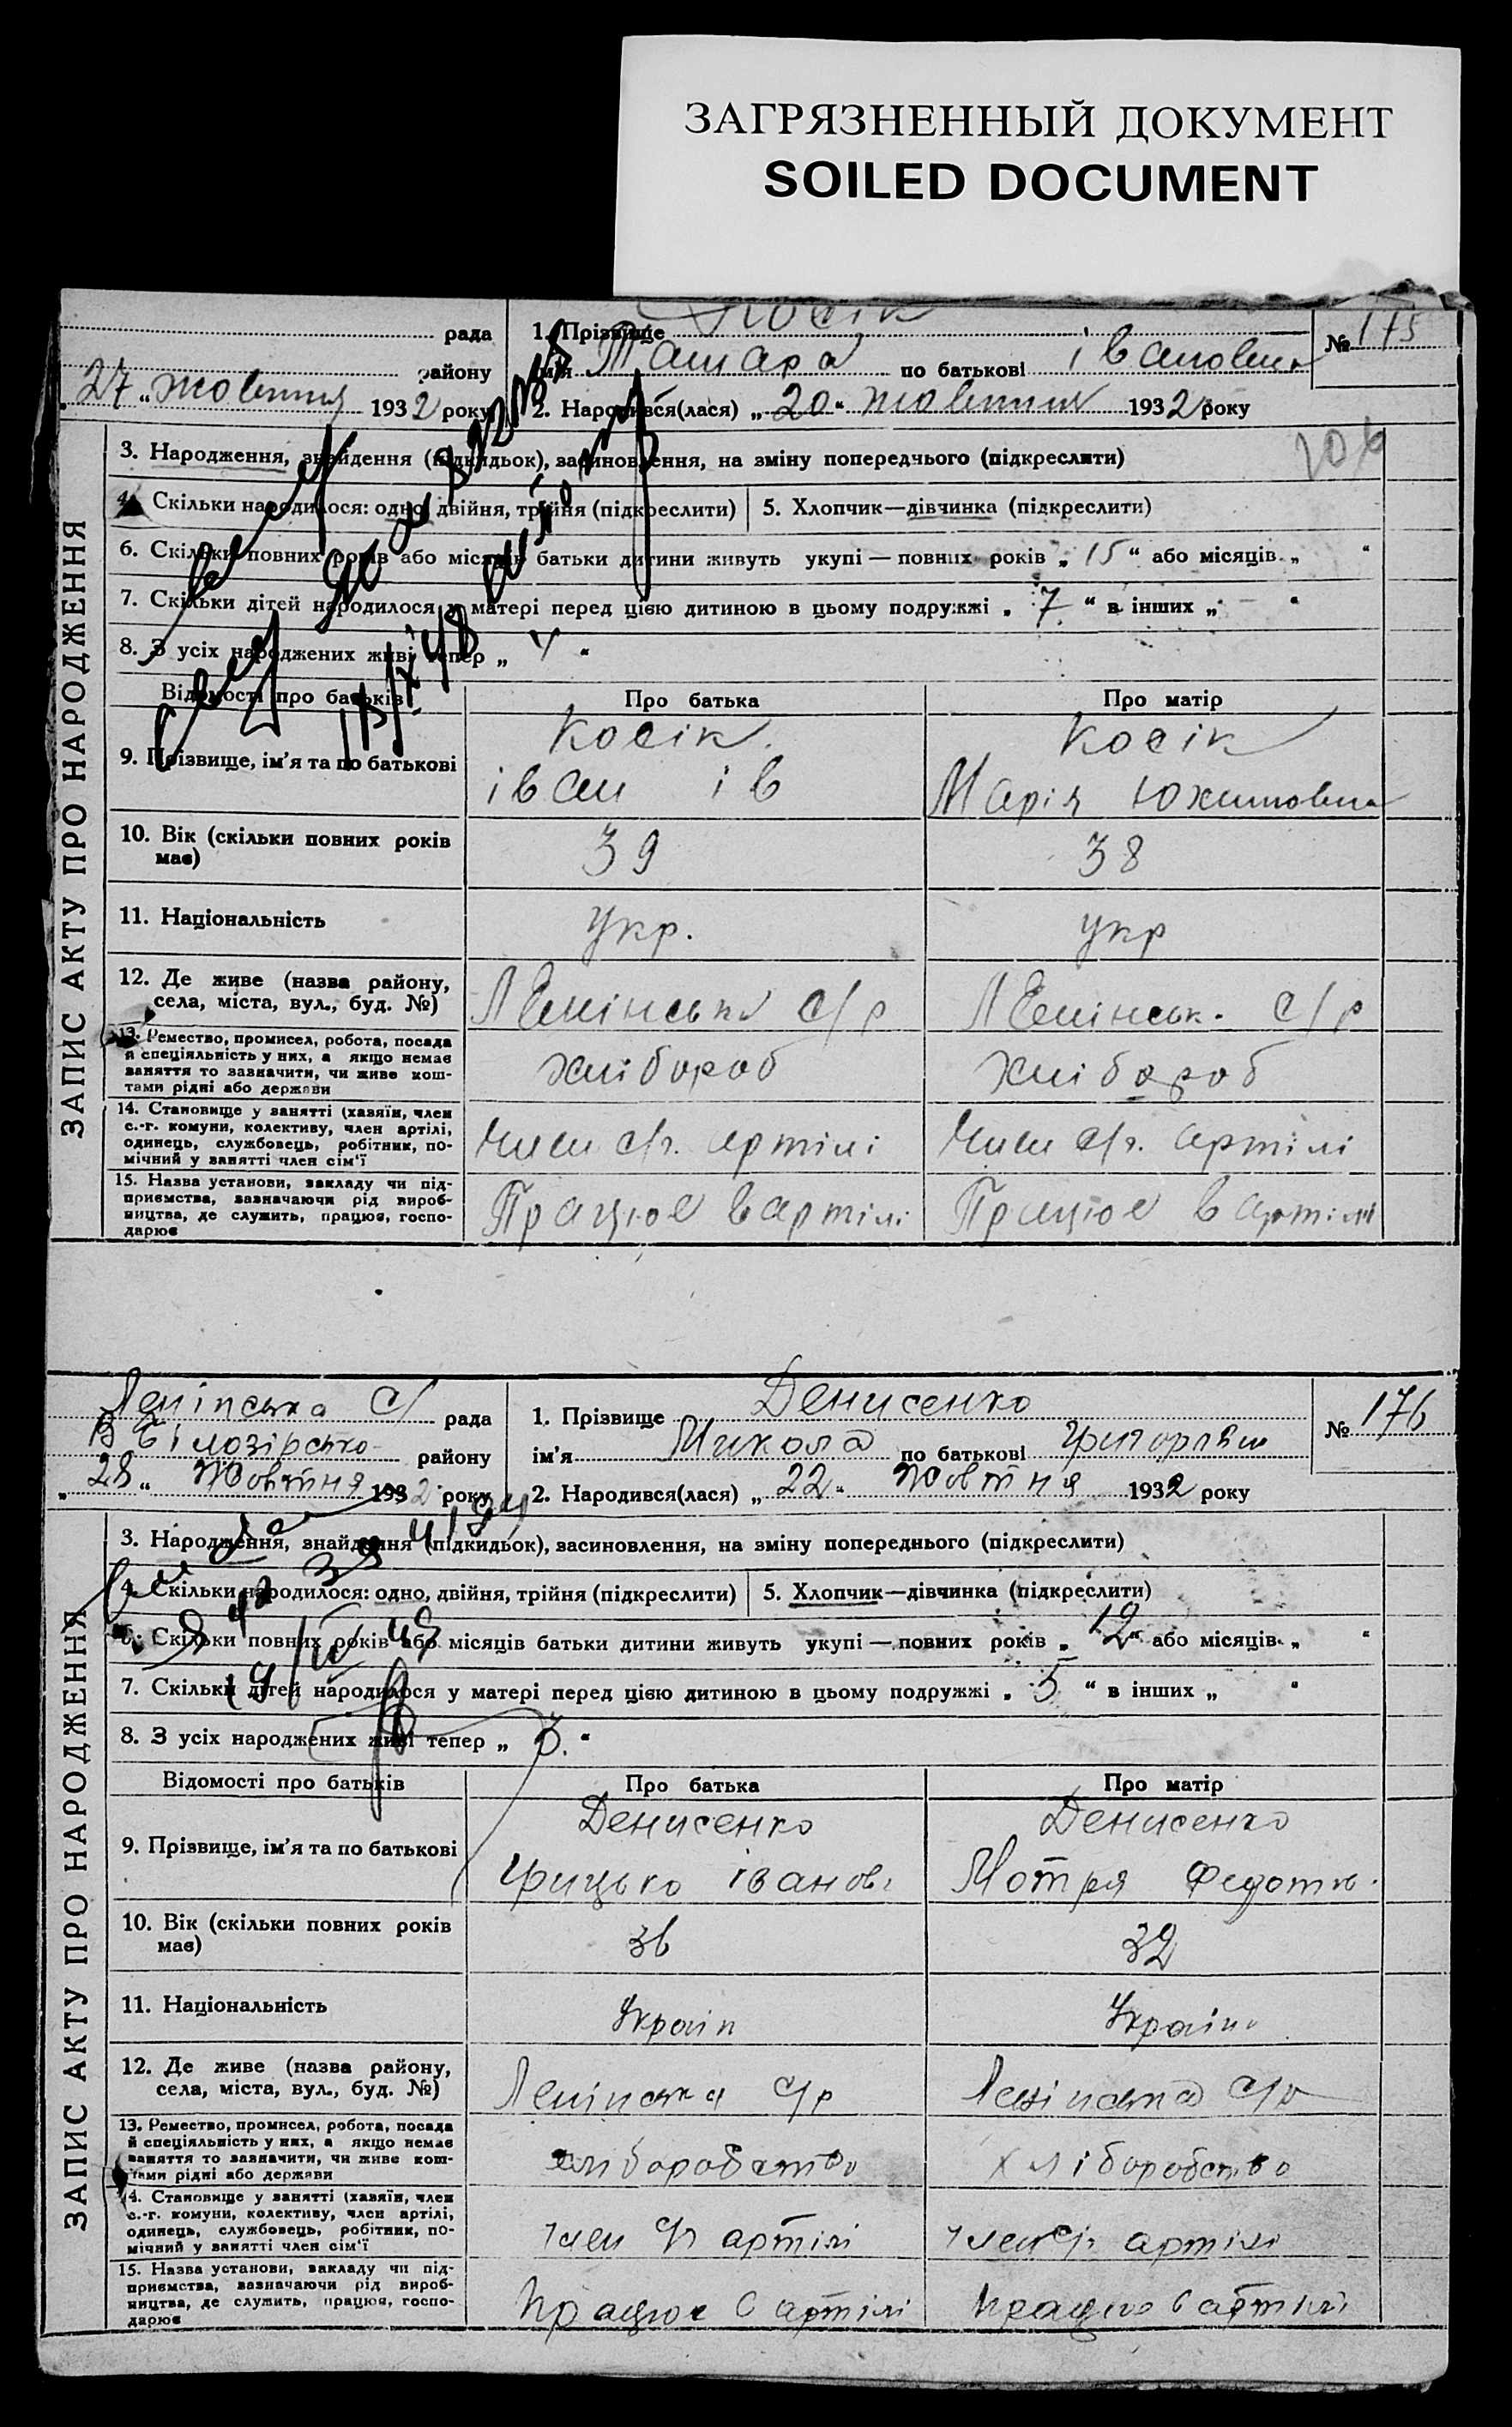 ЗАГРЯЗНЕННЫЙ ДОКУМЕНТ
SOILED DOCUMENT
рада
району
„27“ жовтня 1932 року
1. Прізвище Косік
ім'я Тамара по батькові івановна
2. Народився(лася) „20“ жовтня 1932 року
№ 175
206
ЗАПИС АКТУ ПРО НАРОДЖЕННЯ
3. Народження, знайдення (підкидьок), засиновлення, на зміну попереднього (підкреслити)
4. Скільки народилося: одно, двійня, трійня (підкреслити)
5. Хлопчик—дівчинка (підкреслити)
6. Скільки повних років або місяців батьки дитини живуть укупі — повних років „15“ або місяців „ “
7. Скільки дітей народилося у матері перед цією дитиною в цьому подружжі „7“ в інших „ - “
8. З усіх народжених живі тепер „4“
Відомості про батьків
Про батька
Про матір
9. Прізвище, ім'я та по батькові
Косік
іван ів
Косік
Марія Юхимовна
10. Вік (скільки повних років має)
39
38
11. Національність
Укр.
укр
12. Де живе (назва району, села, міста, вул., буд. №)
Ленінська с/р
Ленінськ. с/р
13. Ремество, промисел, робота, посада й спеціяльність у них, а якщо немає заняття то зазначити, чи живе коштами рідні або держави
хлібороб
хлібороб
14. Становище у занятті (хазяїн, член с.-г. комуни, колективу, член артілі, одинець, службовець, робітник, помічний у занятті член сім'ї
Член с/г. артілі
Член с/г. артілі
15. Назва установи, закладу чи підприємства, зазначаючи рід виробництва, де служить, працює, господарює
Працює в артілі
Працює в артілі
Ленінська с/ рада
В Білозірсько- району
„28“ Жовтня 1932 року
1. Прізвище Денисенко
ім'я Микола по батькові Григорівич
2. Народився(лася) „22“ Жовтня 1932 року
№ 176
ЗАПИС АКТУ ПРО НАРОДЖЕННЯ
3. Народження, знайдення (підкидьок), засиновлення, на зміну попереднього (підкреслити)
4. Скільки народилося: одно, двійня, трійня (підкреслити)
5. Хлопчик—дівчинка (підкреслити)
6. Скільки повних років або місяців батьки дитини живуть укупі — повних років „12“ або місяців „ “
7. Скільки дітей народилося у матері перед цією дитиною в цьому подружжі „5“ в інших „ “
8. З усіх народжених живі тепер „3.“
Відомості про батьків
Про батька
Про матір
9. Прізвище, ім'я та по батькові
Денисенко
Грицько іванов.
Денисенко
Мотря Федотів.
10. Вік (скільки повних років має)
36
32
11. Національність
Україн
Україн.
12. Де живе (назва району, села, міста, вул., буд. №)
Ленінська с/р
Ленінська с/р
13. Ремество, промисел, робота, посада й спеціяльність у них, а якщо немає заняття то зазначити, чи живе коштами рідні або держави
хліборобство
хліборобство
14. Становище у занятті (хазяїн, член с.-г. комуни, колективу, член артілі, одинець, службовець, робітник, помічний у занятті член сім'ї
член с/г артілі
член с/г артілі
15. Назва установи, закладу чи підприємства, зазначаючи рід виробництва, де служить, працює, господарює
працює в артілі
працює в артілі